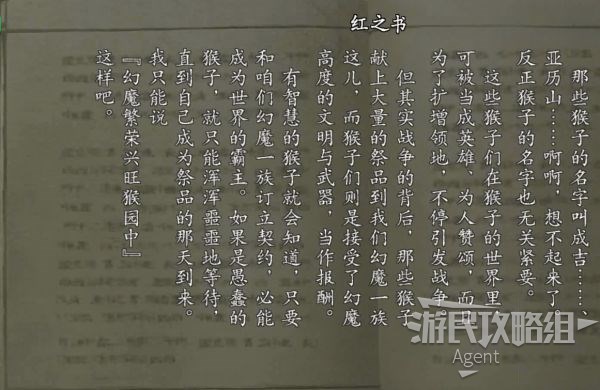 红之书
那些猴子的名字叫成吉……、
亚历山……啊啊，想不起来了，
反正猴子的名字也无关紧要。
这些猴子们在猴子的世界里，
可被当成英雄、为人赞颂，而且
为了扩增领地，不停引发战争。
但其实战争的背后，那些猴子
献上大量的祭品到我们幻魔一族
这儿，而猴子们则是接受了幻魔
高度的文明与武器，当作报酬。
有智慧的猴子就会知道，只要
和咱们幻魔一族订立契约，必能
成为世界的霸主。如果是愚蠢的
猴子，就只能浑浑噩噩地等待，
直到自己成为祭品的那天到来。
我只能说
『幻魔繁荣兴旺猴园中』
这样吧。
游民攻略组
Agent